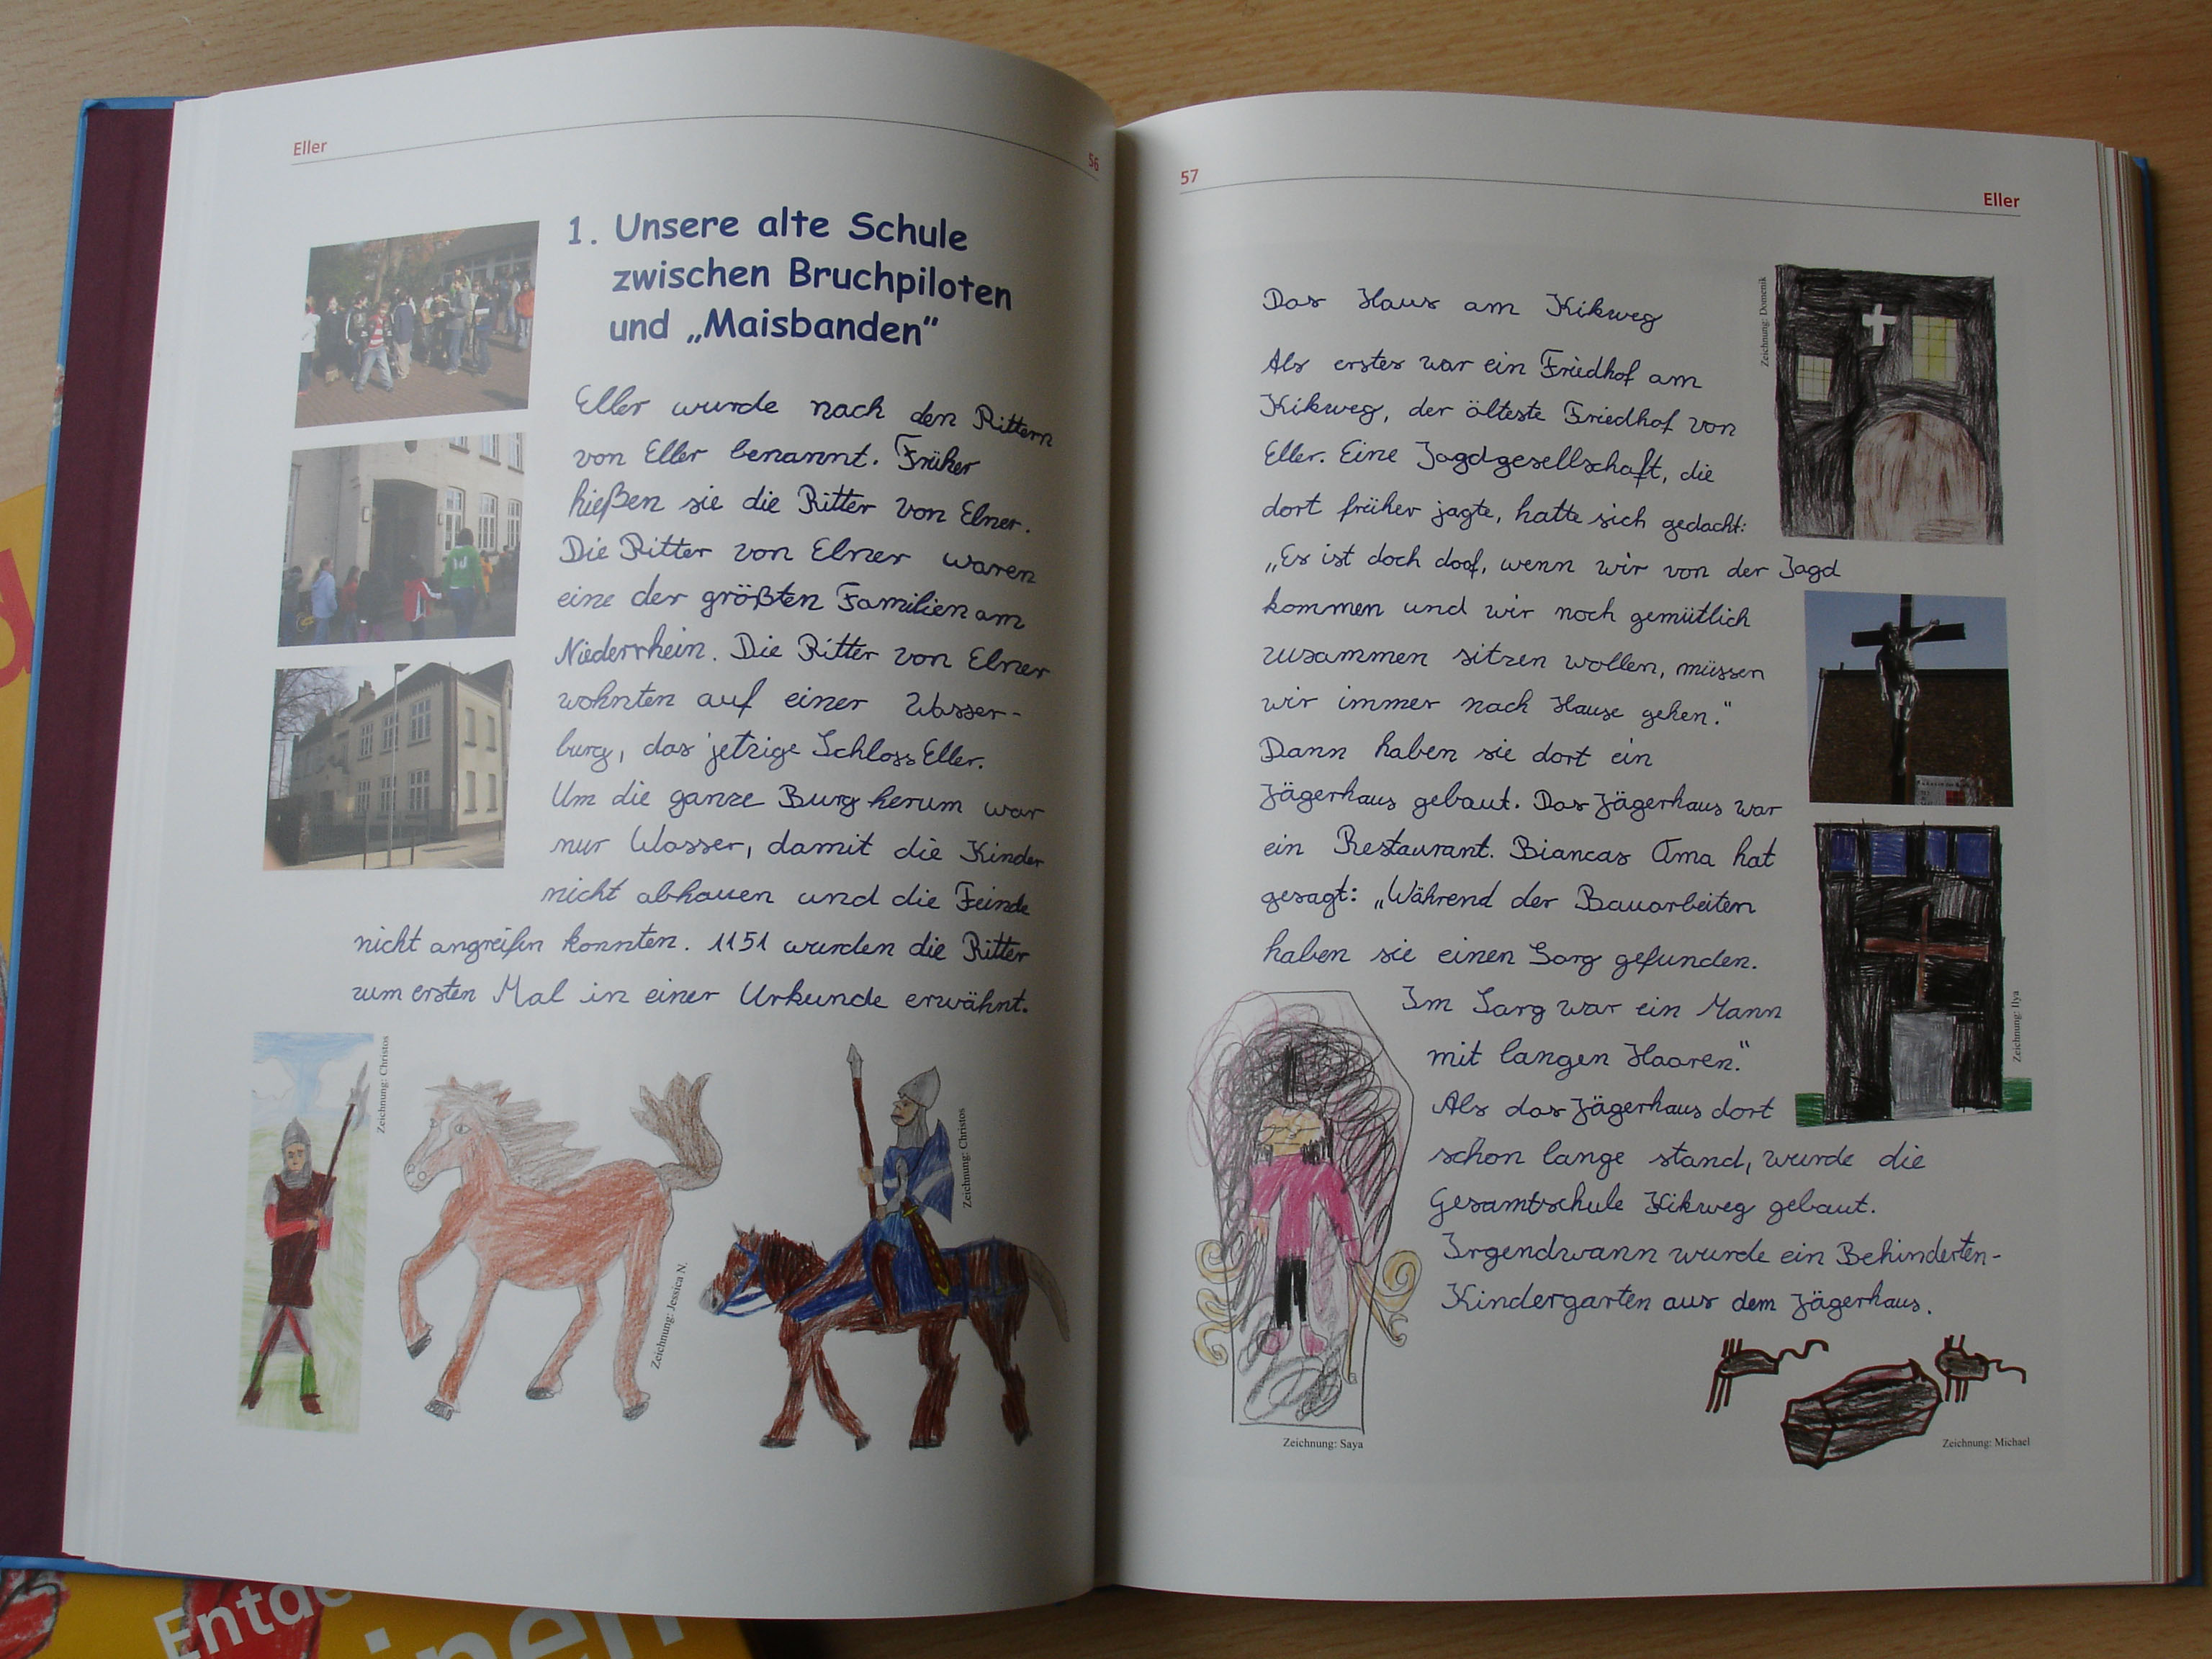 Eller
56
1. Unsere alte Schule
zwischen Bruchpiloten
und „Maisbanden“
Eller wurde nach den Rittern
von Eller benannt. Früher
hießen sie die Ritter von Elner.
Die Ritter von Elner waren
eine der größten Familien am
Niederrhein. Die Ritter von Elner
wohnten auf einer Wasser-
burg, das jetzige Schloss Eller.
Um die ganze Burg herum war
nur Wasser, damit die Kinder
nicht abhauen und die Feinde
nicht angreifen konnten. 1151 wurden die Ritter
zum ersten Mal in einer Urkunde erwähnt.
Zeichnung: Christos
Zeichnung: Jessica N.
Zeichnung: Christos
57
Eller
Das Haus am Kikweg
Als erstes war ein Friedhof am
Kikweg, der älteste Friedhof von
Eller. Eine Jagdgesellschaft, die
dort früher jagte, hatte sich gedacht:
„Es ist doch doof, wenn wir von der Jagd
kommen und wir noch gemütlich
zusammen sitzen wollen, müssen
wir immer nach Hause gehen.“
Dann haben sie dort ein
Jägerhaus gebaut. Das Jägerhaus war
ein Restaurant. Biancas Oma hat
gesagt: „Während der Bauarbeiten
haben sie einen Sarg gefunden.
Im Sarg war ein Mann
mit langen Haaren.“
Als das Jägerhaus dort
schon lange stand, wurde die
Gesamtschule Kikweg gebaut.
Irgendwann wurde ein Behinderten-
Kindergarten aus dem Jägerhaus.
Zeichnung: Domenik
Zeichnung: Ilya
Zeichnung: Saya
Zeichnung: Michael